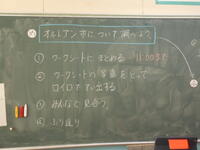 オルトアン市について調べよう
① ワークシートにまとめる 11:00まで
② ワークシートの写真をとって
ロイロでてい出する
③ みんなで見合う
④ ふり返り